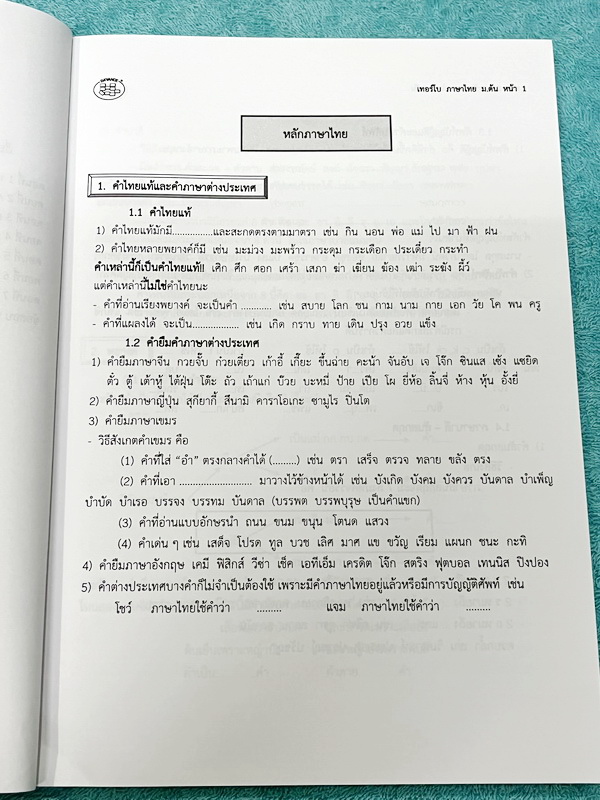 เทอร์โบ ภาษาไทย ม.ต้น หน้า 1
หลักภาษาไทย
1. คำไทยแท้และคำภาษาต่างประเทศ
1.1 คำไทยแท้
1) คำไทยแท้มักมี...............และสะกดตรงตามมาตรา เช่น กิน นอน พ่อ แม่ ไป มา ฟ้า ฝน
2) คำไทยหลายพยางค์ก็มี เช่น มะม่วง มะพร้าว กระดุม กระเดือก ประเดี๋ยว กระทำ
คำเหล่านี้ก็เป็นคำไทยแท้!! เศิก ศึก ศอก เศร้า เสภา ฆ่า เฆี่ยน ฆ้อง เฒ่า ระฆัง ผี้ว์
แต่คำเหล่านี้ไม่ใช่คำไทยนะ
- คำที่อ่านเรียงพยางค์ จะเป็นคำ ............ เช่น สบาย โลก ชน กาม นาม กาย เอก วัย โค พน ครู
- คำที่แผลงได้ จะเป็น.................. เช่น เกิด กราบ ทาย เดิน ปรุง อวย แข็ง
1.2 คำยืมคำภาษาต่างประเทศ
1) คำยืมภาษาจีน กวยจั๊บ ก๋วยเตี๋ยว เก้าอี้ เกี๊ยะ ขึ้นฉ่าย คะน้า จันอับ เจ โจ๊ก ซินแส เซ้ง แซยิด
ตั๋ว ตู้ เต้าหู้ ไต้ฝุ่น โต๊ะ ถัว เถ้าแก่ บ๊วย บะหมี่ ป้าย เปีย โผ ยี่ห้อ ลิ้นจี่ ห้าง หุ้น อั้งยี่
2) คำยืมภาษาญี่ปุ่น สุกียากี้ สึนามิ คาราโอเกะ ซามูไร ปิ่นโต
3) คำยืมภาษาเขมร
- วิธีสังเกตคำเขมร คือ
(1) คำที่ใส่ “อำ” ตรงกลางคำได้ (.........) เช่น ตรา เสร็จ ตรวจ ทลาย ขลัง ตรง
(2) คำที่เอา .......................... มาวางไว้ข้างหน้าได้ เช่น บังเกิด บังคม บังควร บันดาล บำเพ็ญ
บำบัด บำเรอ บรรจง บรรทม บันดาล (บรรพต บรรพบุรุษ เป็นคำแขก)
(3) คำที่อ่านแบบอักษรนำ ถนน ขนม ขนุน โตนด แสวง
(4) คำเด่น ๆ เช่น เสด็จ โปรด ทูล บวช เลิศ มาศ แข ขวัญ เรียม แผนก ชนะ กะทิ
4) คำยืมภาษาอังกฤษ เคมี ฟิสิกส์ วีซ่า เช็ค เอทีเอ็ม เครดิต โจ๊ก สตริง ฟุตบอล เทนนิส ปิงปอง
5) คำต่างประเทศบางคำก็ไม่จำเป็นต้องใช้ เพราะมีคำภาษาไทยอยู่แล้วหรือมีการบัญญัติศัพท์ เช่น
โชว์ ภาษาไทยใช้คำว่า ......... แจม ภาษาไทยใช้คำว่า .........